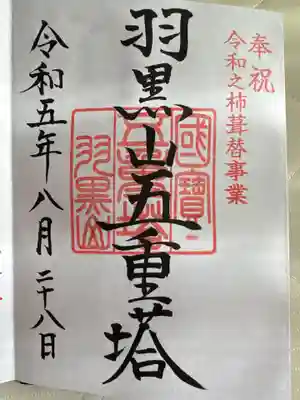 奉祝
令和之杮葺替事業
羽黒山五重塔
國寶
五重塔
羽黒山
令和五年八月二十八日